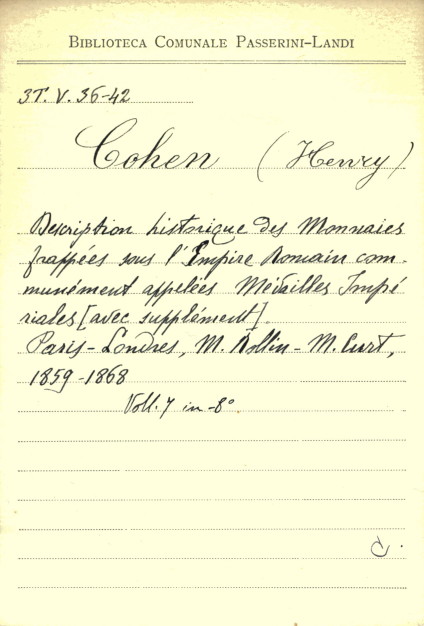 BIBLIOTECA COMUNALE PASSERINI-LANDI
3T. V. 36-42
Cohen (Henry)
Description historique des Monnaies
frappées sous l'Empire Romain com-
munément appelées Médailles Impé
riales [avec supplément].
Paris-Londres, M. Rollin - M. Curt,
1859-1868
Voll. 7 in-8°
C.